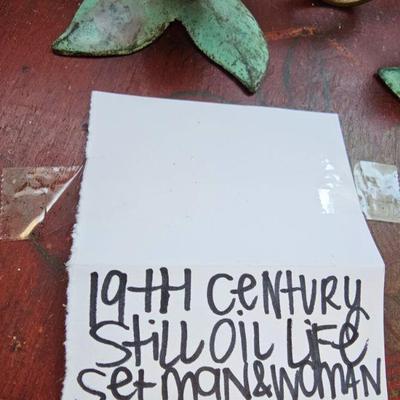 19TH CENTURY
Still Oil LiFe
Set MAN & WOMAN